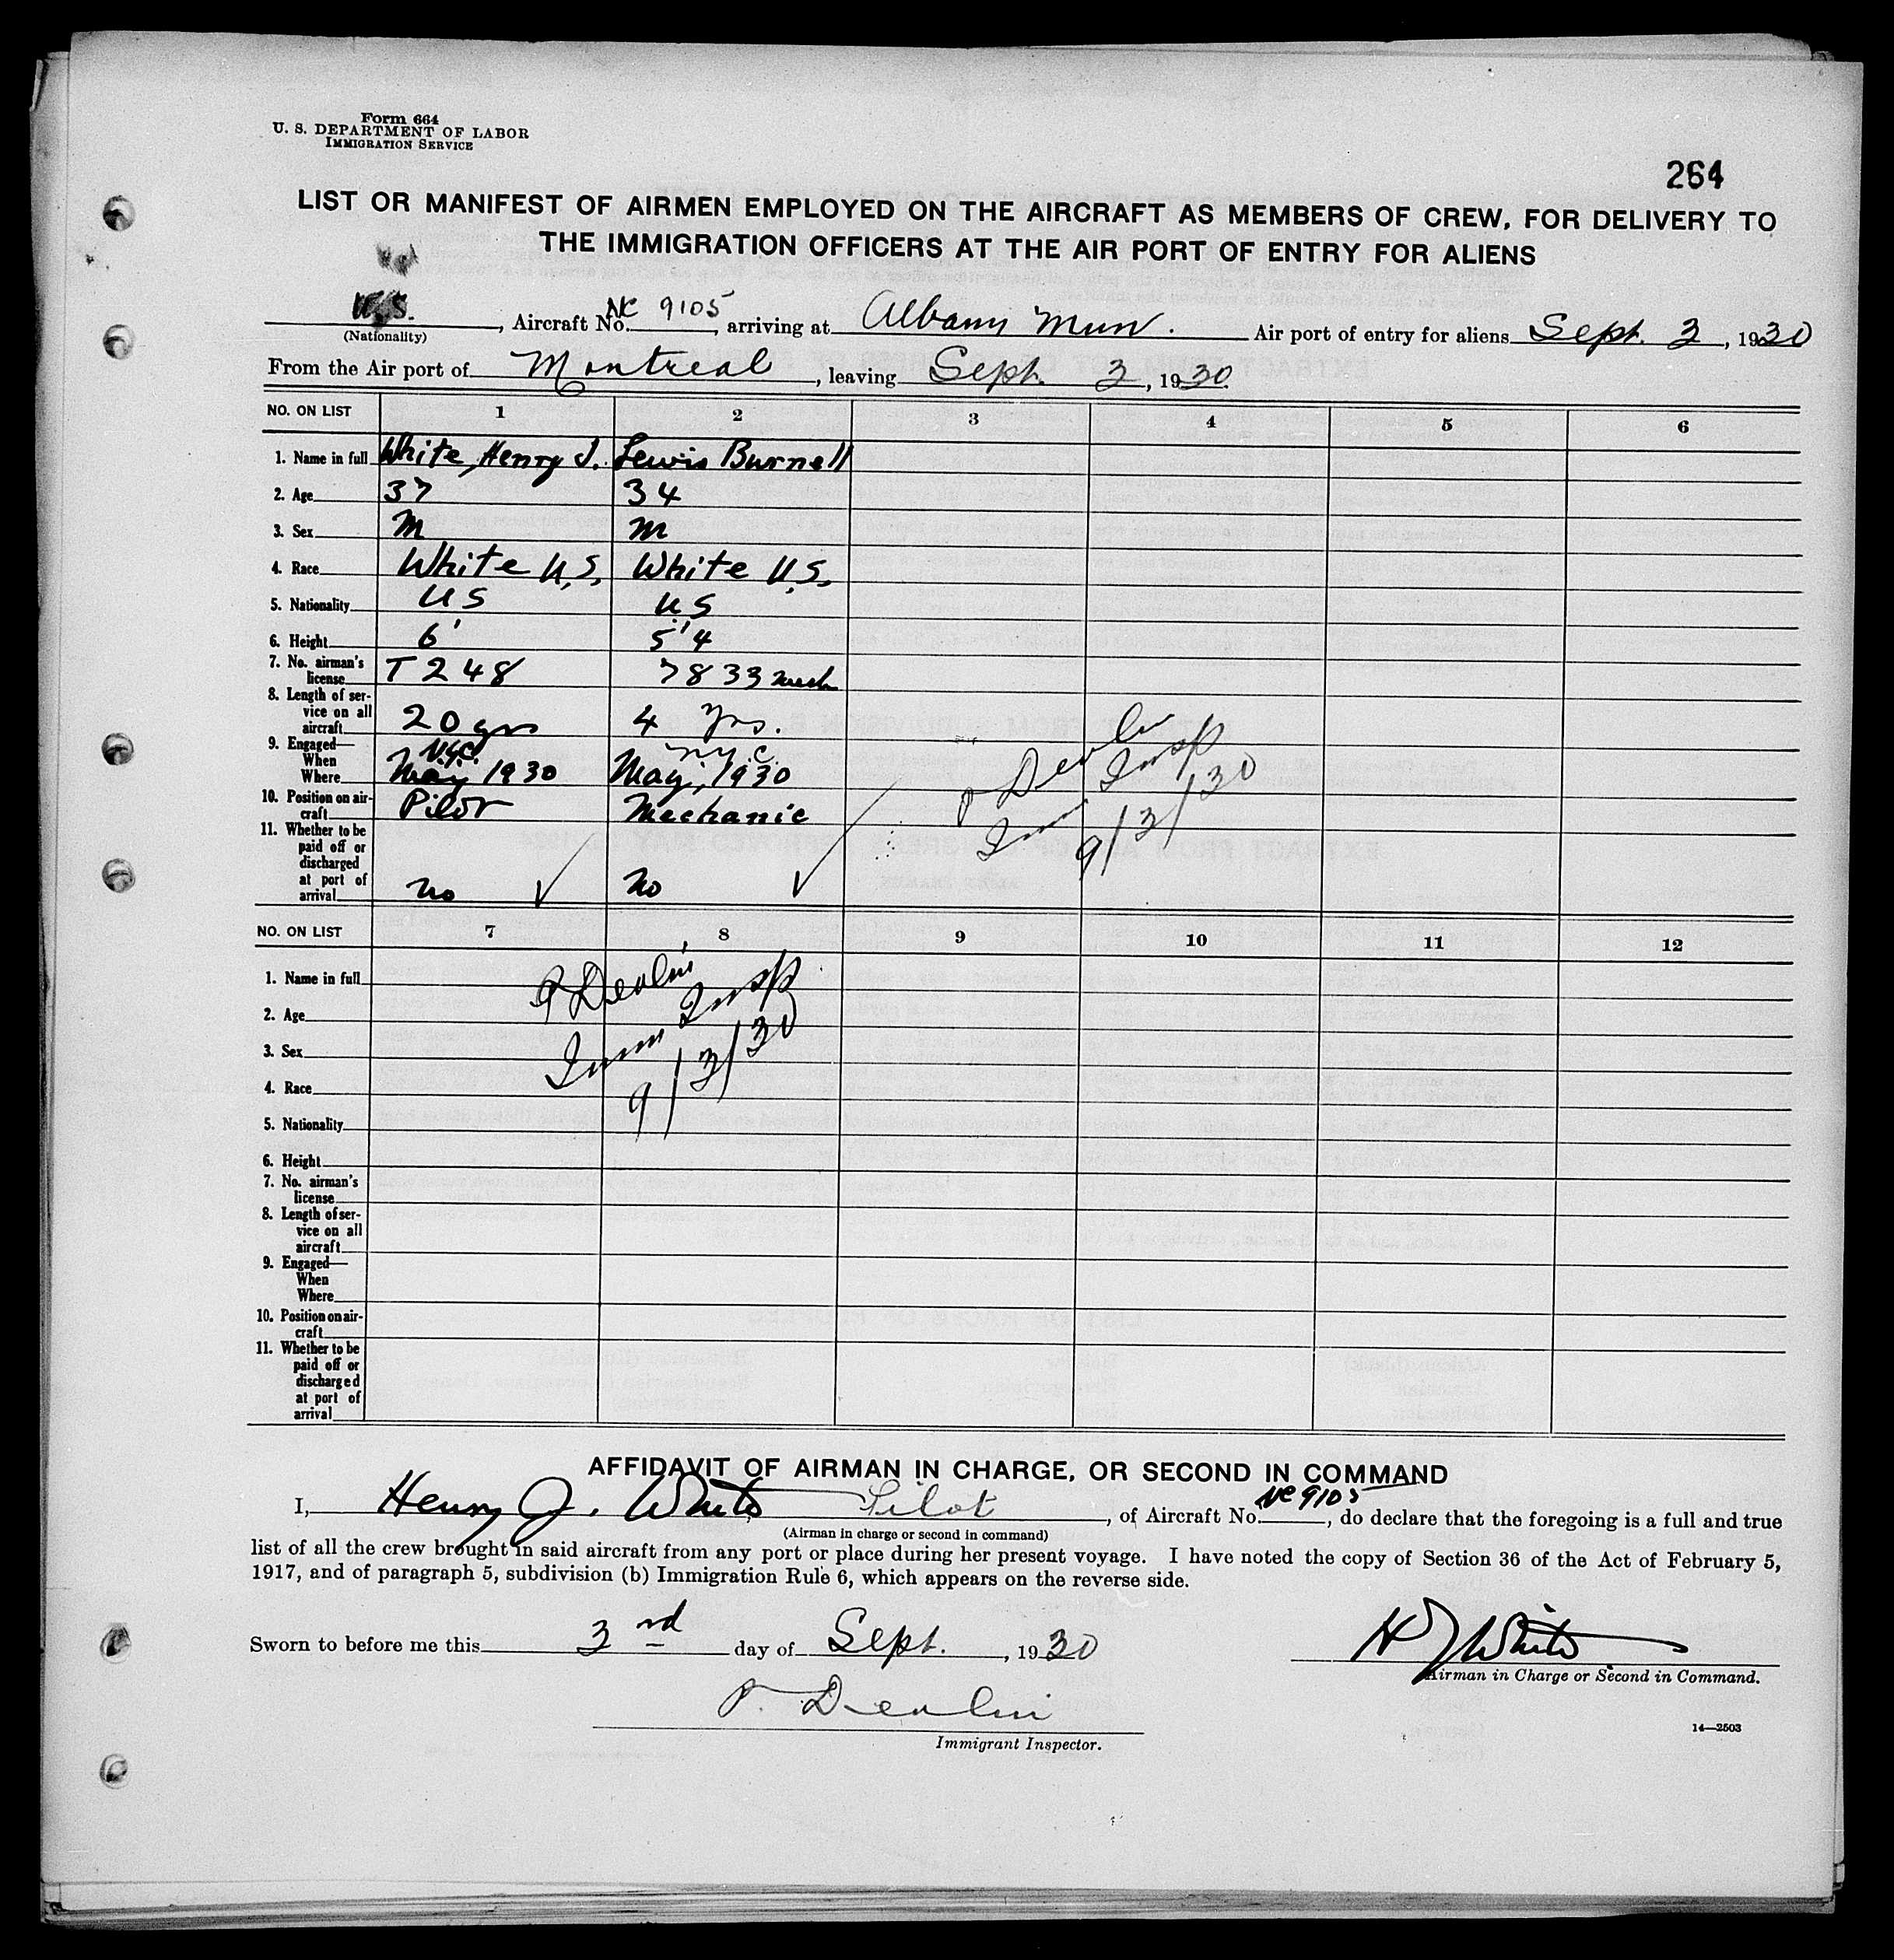 Form 664
U. S. DEPARTMENT OF LABOR
IMMIGRATION SERVICE
264
LIST OR MANIFEST OF AIRMEN EMPLOYED ON THE AIRCRAFT AS MEMBERS OF CREW, FOR DELIVERY TO
THE IMMIGRATION OFFICERS AT THE AIR PORT OF ENTRY FOR ALIENS
U.S., Aircraft No. NC 9105, arriving at Albany Mun. Air port of entry for aliens Sept. 3, 1930
(Nationality)
From the Air port of Montreal, leaving Sept. 3, 1930
NO. ON LIST 1 2 3 4 5 6
1. Name in full White, Henry J. Lewis Burnell
2. Age 37 34
3. Sex M M
4. Race White U.S. White U.S.
5. Nationality US U.S
6. Height 6' 5'4
7. No. airman's license T248 7833 mech
8. Length of service on all aircraft 20 yrs 4 Yrs.
9. Engaged— When Where N.Y.C. May 1930 NYC. May, 1930
10. Position on aircraft Pilot Mechanic
11. Whether to be paid off or discharged at port of arrival no no
P Devlin
Imm Insp
9/3/30
NO. ON LIST 7 8 9 10 11 12
1. Name in full
2. Age
3. Sex
4. Race
5. Nationality
6. Height
7. No. airman's license
8. Length of service on all aircraft
9. Engaged— When Where
10. Position on aircraft
11. Whether to be paid off or discharged at port of arrival
P Devlin
Imm Insp
9/3/30
AFFIDAVIT OF AIRMAN IN CHARGE, OR SECOND IN COMMAND
I, Henry J. White Pilot, of Aircraft No. NC 9105, do declare that the foregoing is a full and true
(Airman in charge or second in command)
list of all the crew brought in said aircraft from any port or place during her present voyage. I have noted the copy of Section 36 of the Act of February 5,
1917, and of paragraph 5, subdivision (b) Immigration Rule 6, which appears on the reverse side.
Sworn to before me this 3rd day of Sept., 1930
H J White
Airman in Charge or Second in Command.
P. Devlin
Immigrant Inspector.
14—2503